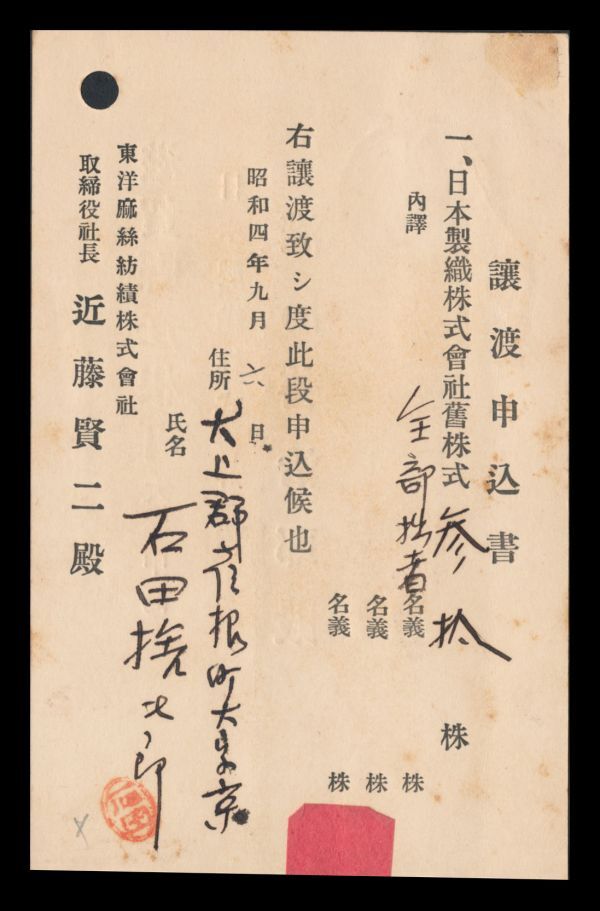 讓渡申込書
一、日本製織株式會社舊株式參拾株
內譯 全部拙者名義 株
名義 株
名義 株
右讓渡致シ度此段申込候也
昭和四年九月六日
住所 犬上郡彦根町大字京
氏名 石田捨次郎
東洋麻絲紡績株式會社
取締役社長 近藤賢二殿